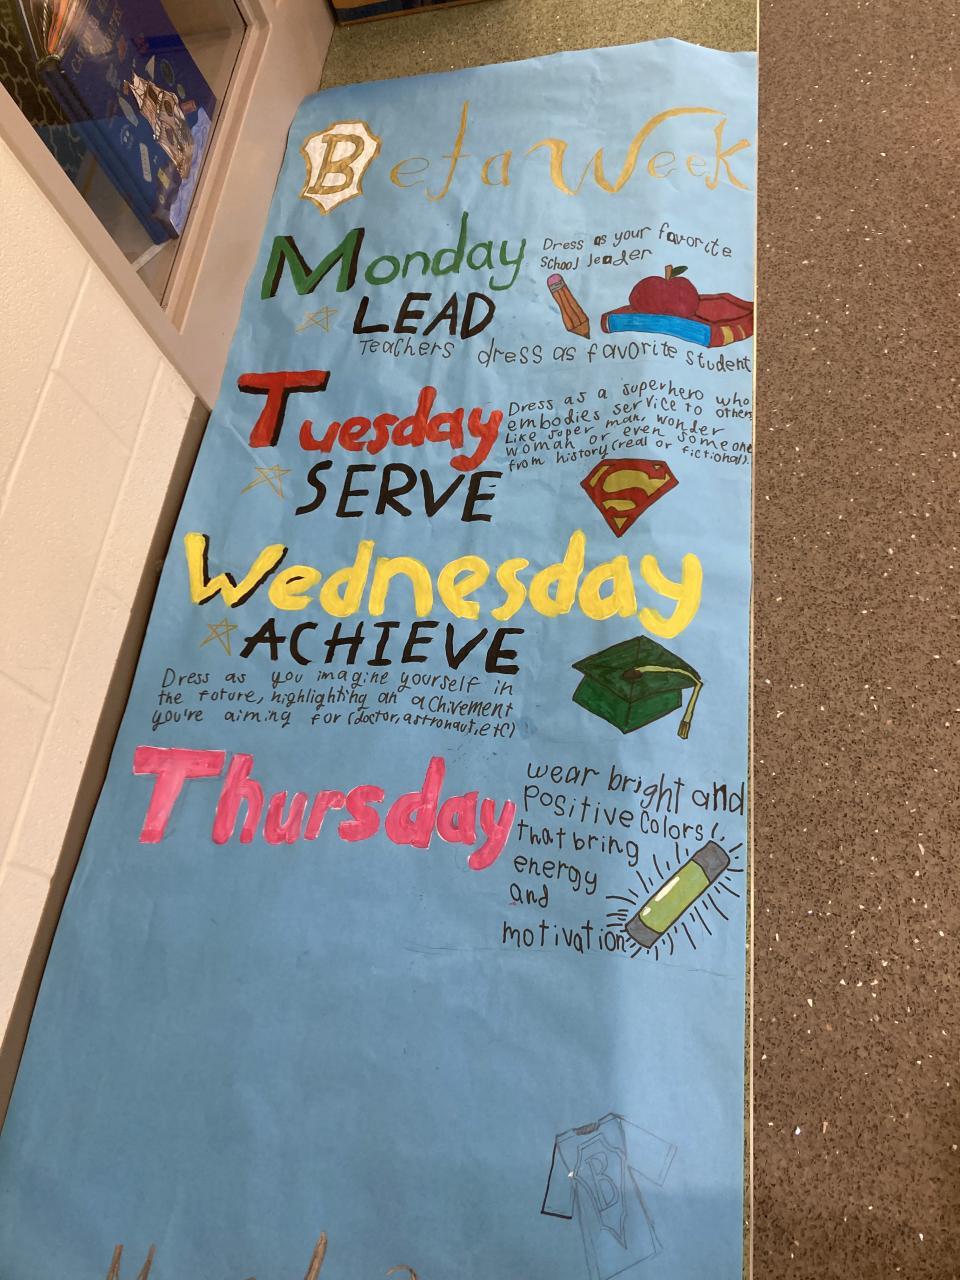 Beta Week
Monday
Dress as your favorite
School leader
LEAD
Teachers dress as favorite student
Tuesday
Dress as a superhero who
embodies service to others
Like super man, wonder
woman or even someone
from history (real or fictional).
SERVE
S
Wednesday
ACHIEVE
Dress as you imagine yourself in
the future, highlighting an achivement
you're aiming for (doctor, astronaut, etc)
Thursday
wear bright and
positive colors!,
that bring
energy
and
motivation
B